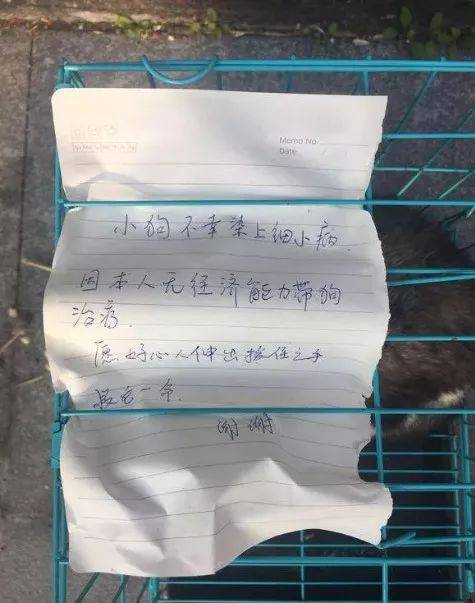 Memo No
Date
小狗不幸染上细小病.
因本人无经济能力带狗
治疗.
愿好心人伸出援住之手
救它一命.
谢谢